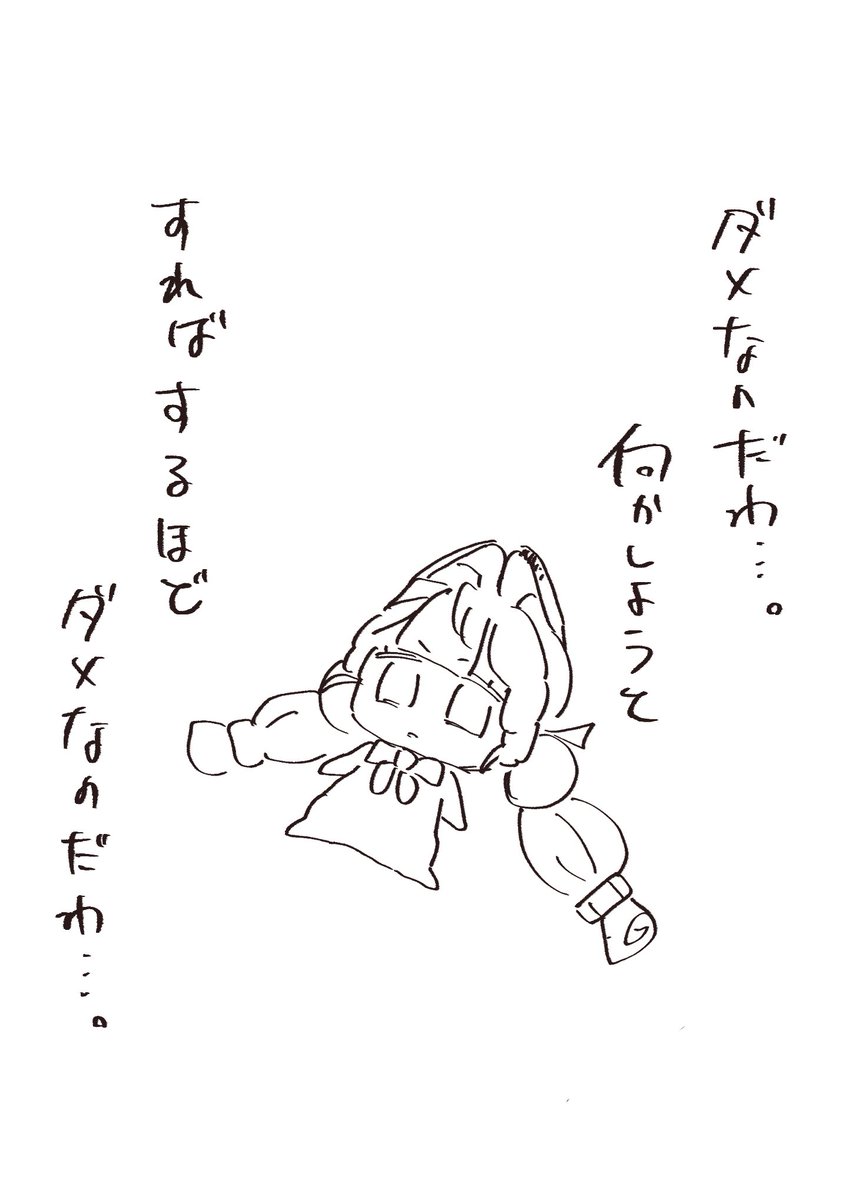 ダメなのだわ…。
何かしようと
すればするほど
ダメなのだわ…。